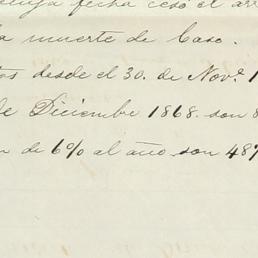 cuya fecha cesó el arr
a muerte de Caso.
os desde el 30. de Nov.e 1
de Diciembre 1868. son 8
n de 6% al año son 487